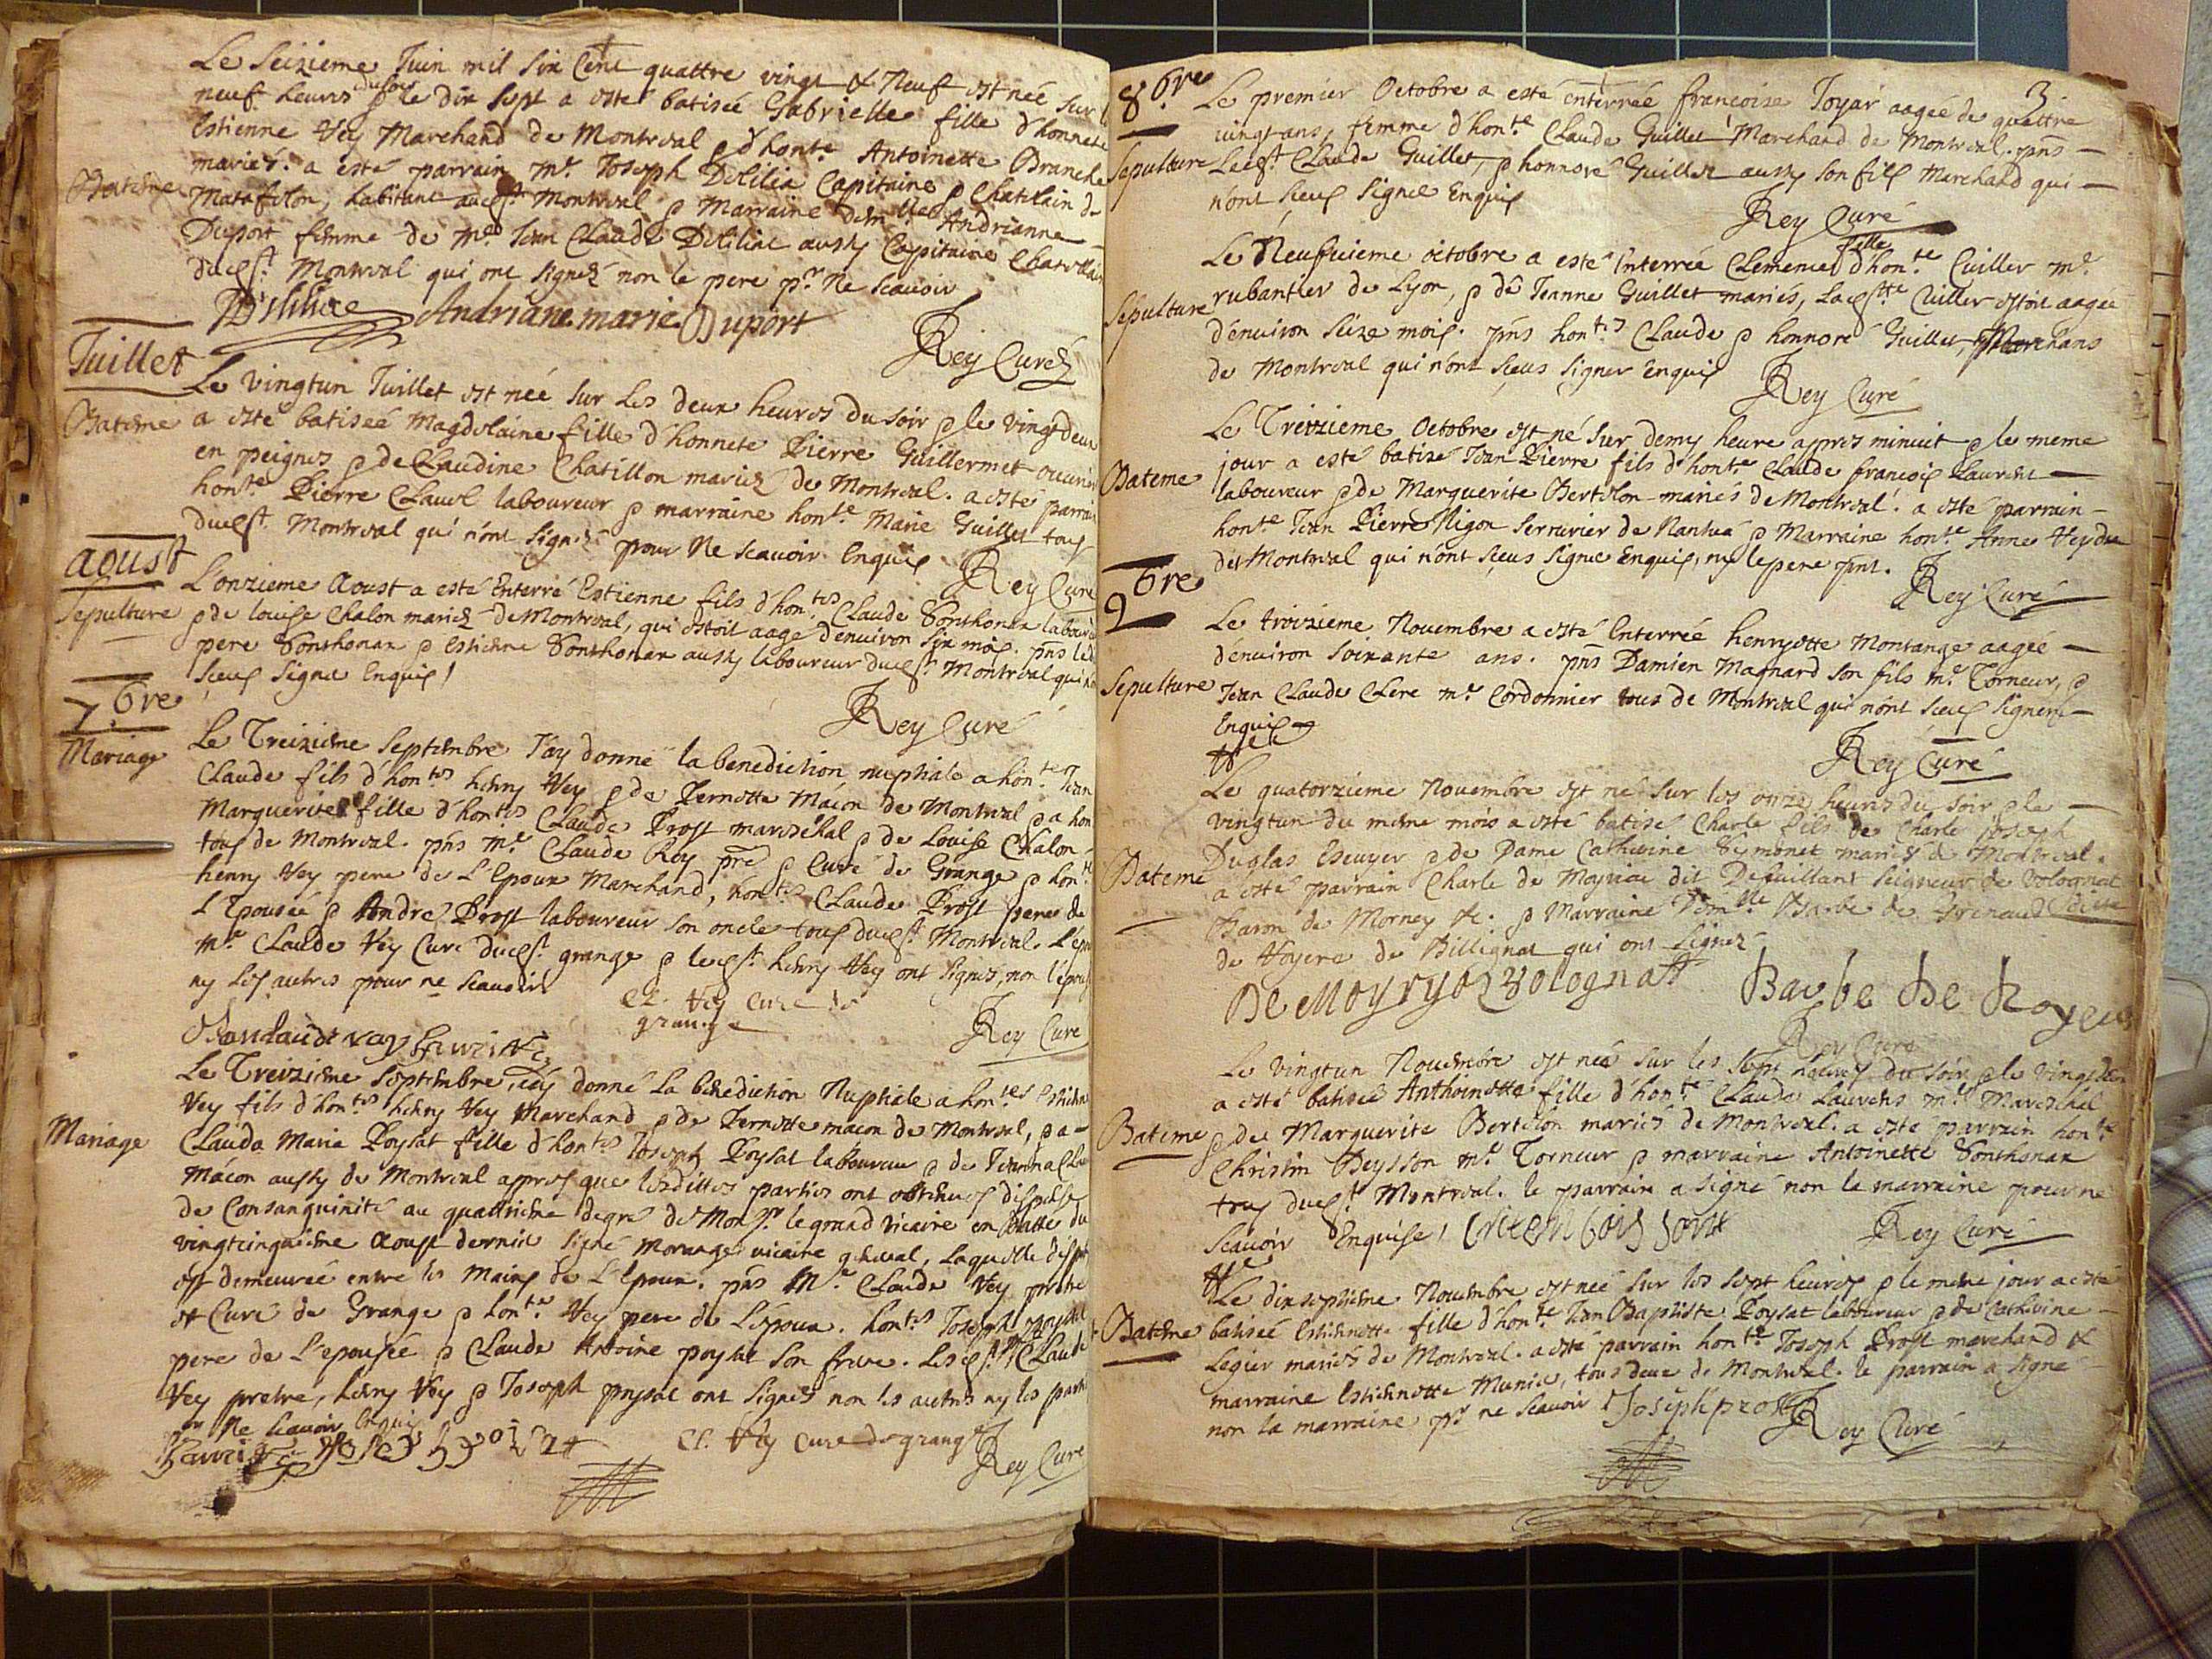 Le Seizieme Juin mil six Cent quattre vingt & Neuf est née sur
neuf heures du soir & le dix sept a esté batisée Gabrielle fille d'honnete
Estienne Vey Marchand de Montreal & d'hont.e Antoinette Branche
mariés. a esté parrain m.e Joseph Delilia Capitaine & Chatelain de
Bateme
Matafelon, habitant aud.st Montreal & Marraine dem.lle Andrianne
Duport femme de m.e Jean Claude Deliliae aussy Capitaine Chatellain
dud.st Montreal qui ont signez non le pere p.r Ne scauoir
Andriane marie Duport
Rey Curé
Juillet
Le vingtun Juillet est née sur les deux heures du soir & le vingtdeux
Bateme
a esté batiseé Magdelaine fille d'honnete Pierre Guillermet ouurier
en peignes & de Claudine Chatillon mariez de Montreal. a esté parrain
hont.e Pierre Clauel laboureur & marraine hont.e Marie Guillet tous
dud.st Montreal qui n'ont signez pour Ne scauoir Enquis
Rey Curé
aoust
L'onzieme Aoust a esté Enterré Estienne fils d'hon.tes Claude Sonthonax laboureur
Sepulture
& de louise Chalon mariez de Montreal, qui estoit aagé d'enuiron six mois. pns led
pere Sonthonax & Estienne Sonthonax aussy laboureur dud.st Montreal qui n'ont
sceus signe Enquis
Rey Curé
7bre
Mariage
Le Treizieme Septembre J'ay donné la benediction nuptiale a hon.tes Jean
Claude fils d'hon.tes henry Vey & de Pernette Mâcon de Montreal & a hon
Marguerite fille d'hon.tes Claude Prost mareschal & de Louise Chalon
tous de Montreal. pns m.e Claude Rey pre & Curé de Grange & hon.te
henry Vey pere de L'Epoux Marchand, hon.tes Claude Prost pere de
L'Epousée & André Prost laboureur son oncle tous dud.st Montreal. L'epoux
m.e Claude Vey Curé dud.st grange & led.st henry Vey ont signés, non l'epouse
ny les autres pour ne scauoir
Cl. Vey Cure de
grange
Rey Curé
Le Treizieme Septembre j'ay donné La benediction Nuptiale a hon.tes Estienne
Vey fils d'hon.tes henry Vey Marchand & de Pernette mâcon de Montreal, & a
Mariage
Claude Marie Poysat fille d'hon.tes Joseph Poysat laboureur & de Jeanna Cla
Mâcon aussy de Montreal apres que lesdittes parties ont obtenus dispense
de Consanguinité au quattrieme degré de Mons.r le grand Vicaire en datte du
vingtcinquieme Aoust dernier signé Morange vicaire general, Laquelle dispense
est demeurée entre les Mains de L'Epoux. pns M.e Claude Vey pretre
et Curé de Grange & hon.te Vey pere de L'epoux. hon.tes Joseph poysat
pere de L'epousée & Claude Antoine poysat son frere. Lesd.st Claude
Vey pretre, henry Vey & Joseph poysat ont signés non les autres ny les parties
pr Ne scauoir Enquis
Cl. Vey Cure de grange
Rey Curé
3
8bre
Le premier Octobre a esté enterrée francoise Joyar aageé de quattre
vingt ans, femme d'hon.te Claude Guillet Marchand de Montreal. pns
Sepulture
Led.st Claude Guillet, & honnoré Guillet aussy son fils Marchand qui
n'ont sceus signe Enquis
Rey Curé
Le Neufuieme octobre a esté Enterrée Clemence fille d'hon.te Cuiller m.e
Sepulture
rubantier de Lyon, & de Jeanne Guillet mariés, Lad.tte Cuiller estoit aageé
d'enuiron seize mois. pns hon.tes Claude & honnoré Guillet, Marchans
de Montreal qui n'ont sceus signer Enquis
Rey Curé
Le Treizzieme Octobre est né sur demy heure apres minuit & le meme
Bateme
jour a esté batisé Jean Pierre fils d'hon.te Claude francois Laurent
laboureur & de Marguerite Bertelon mariés de Montreal. a esté parrain
hon.te Jean Pierre Nigon serrurier de Nantua & Marraine hon.te Anne Vey
de Montreal qui n'ont sceus signe Enquis, ny le pere pnt.
Rey Curé
9bre
Le troizieme Nouembre a esté Enterrée henryette Montange aagée
d'enuiron soixante ans. pns Damien Magnard son fils m.e Torneur, &
Sepulture
Jean Claude Clere m.e Cordonnier tous de Montreal qui n'ont sceus signer
Enquis
Rey Curé
Le quatorzieme Nouembre est né sur les onze heures du soir & le
vingtun du meme mois a esté batisé Charle fils de Charle Joseph
Bateme
Duglas Escuyer & de Dame Catherine Symonet mariés de Montreal.
a esté parrain Charle de Moyriac dit Deuillant seigneur de Volognat
Baron de Morney &c. & Marraine Dem.lle Barbe de Grenaud
de Royere de Billignat qui ont signez
De Moyrya Volognat
Barbe De Royere
Rey Curé
Le vingtun Nouembre est née sur les sept heures du soir & le vingtdeux
a esté batisée Anthoinette fille d'hon.te Claude Laurens m.e Mareschal
Bateme
& de Marguerite Bertelon mariés de Montreal. a esté parrain hon.te
Christin Beysson m.e Torneur & marraine Antoinette Sonthonax
tous dud.st Montreal. le parrain a signé non la marraine pour ne
scauoir Enquise
Rey Curé
Le dixseptieme Nouembre est née sur les sept heures & le meme jour a esté
Bateme
batiseé Estiennette fille d'hon.te Jean Baptiste Poysat laboureur & de Catherine
Legier mariés de Montreal. a esté parrain hon.te Joseph Prost marchand &
marraine Estiennette Munier, tous deux de Montreal. le parrain a signé
non la marraine pr ne scauoir
Joseph prost
Rey Curé